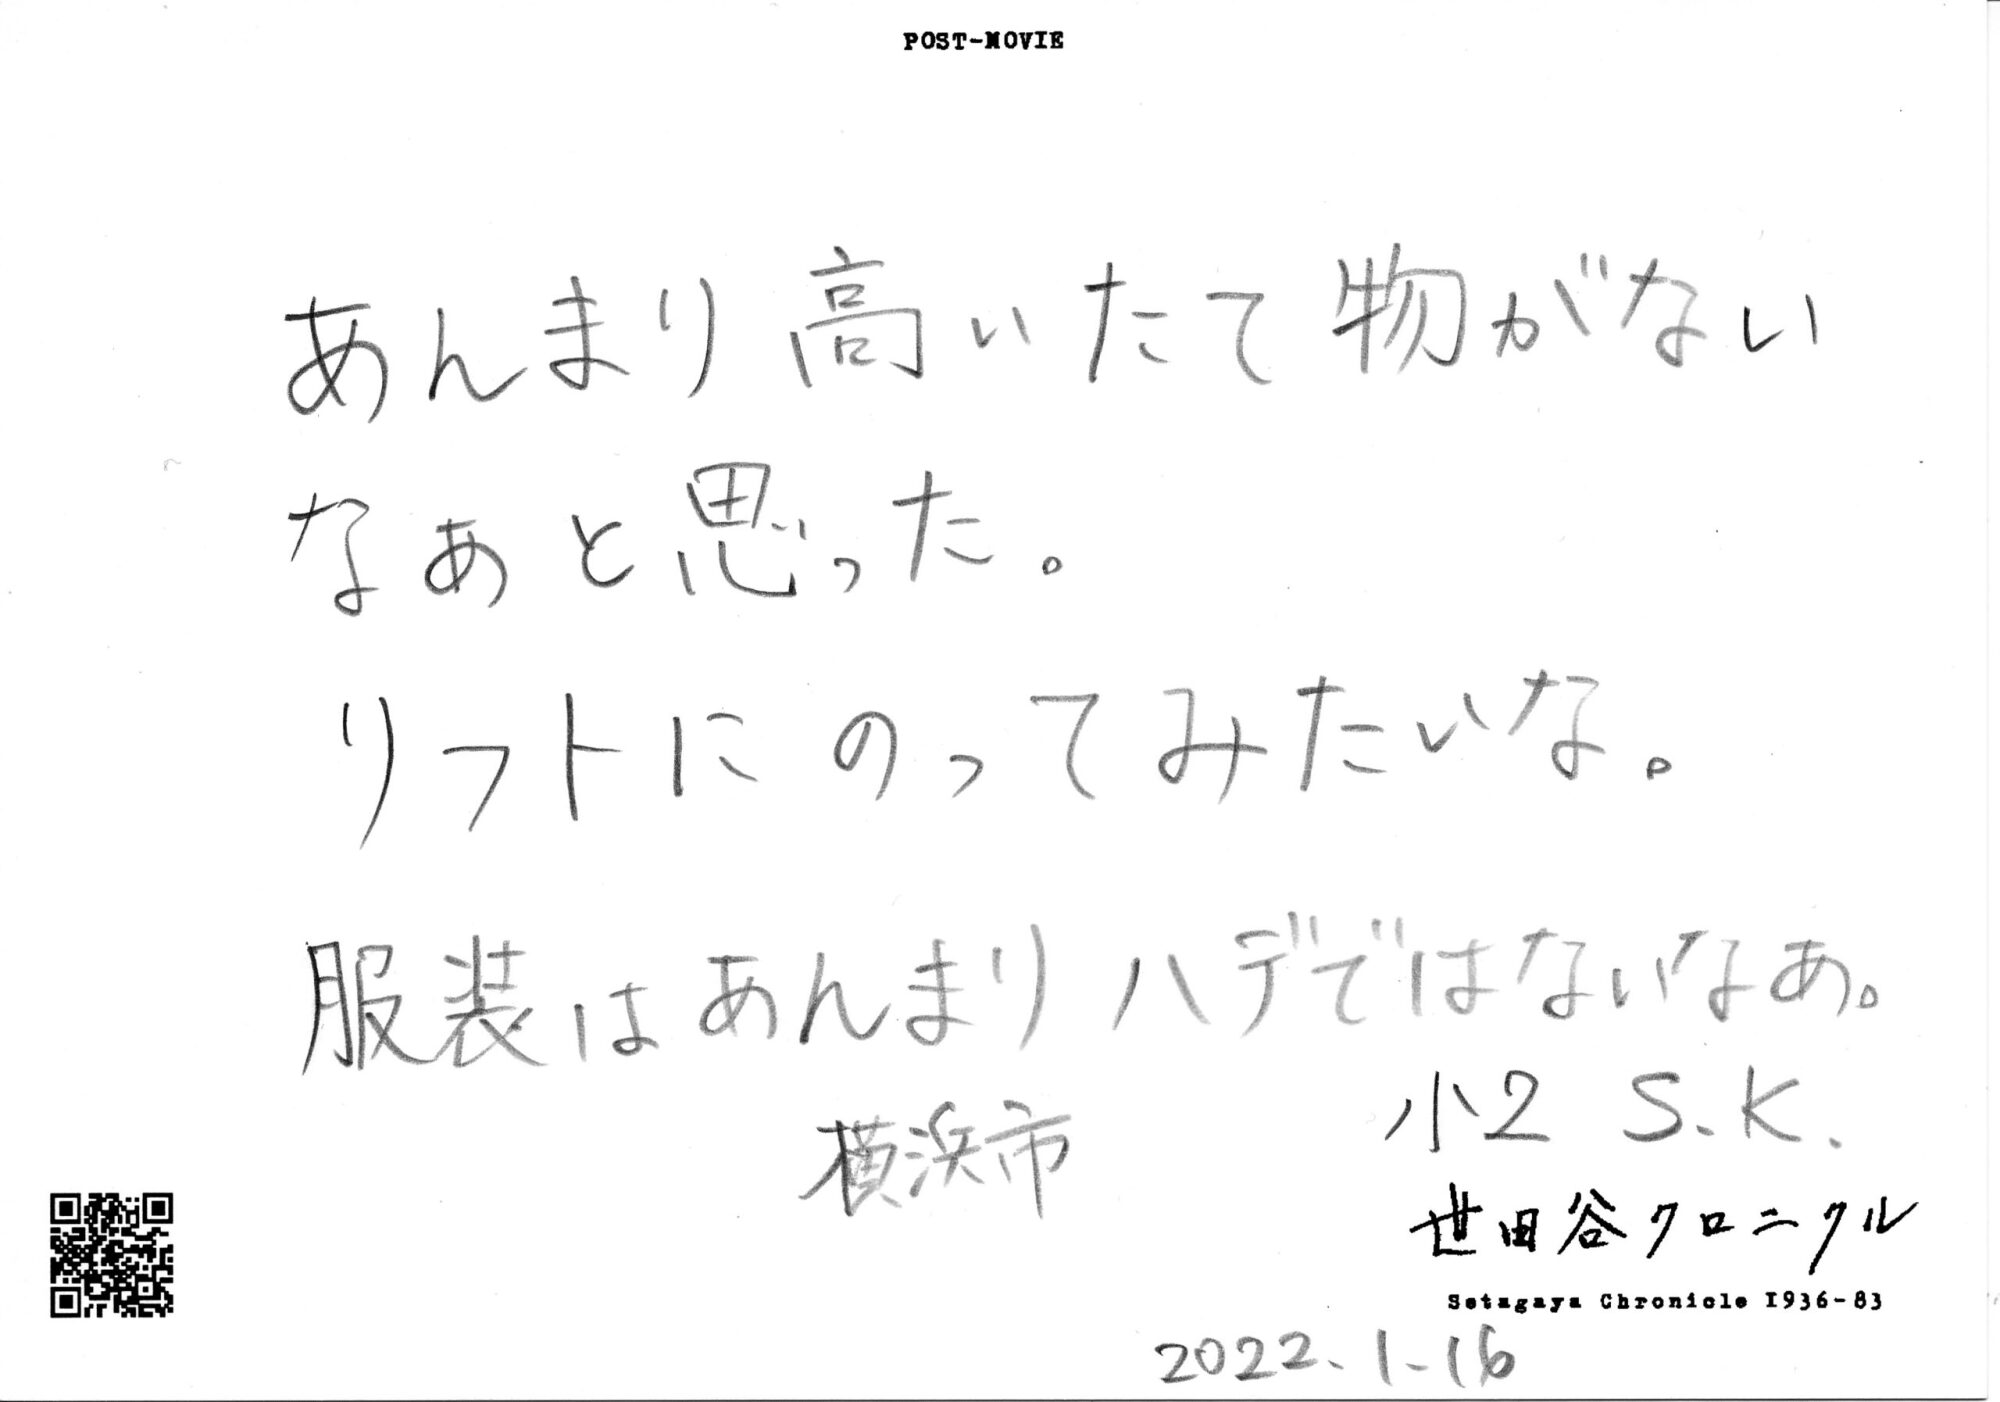 POST-MOVIE
あんまり高いたて物がない
なぁと思った。
リフトにのってみたいな。
服装はあんまりハデではないなあ。
小2 S.K.
横浜市
世田谷クロニクル
Setagaya Chronicle 1936-83
2022.1.16